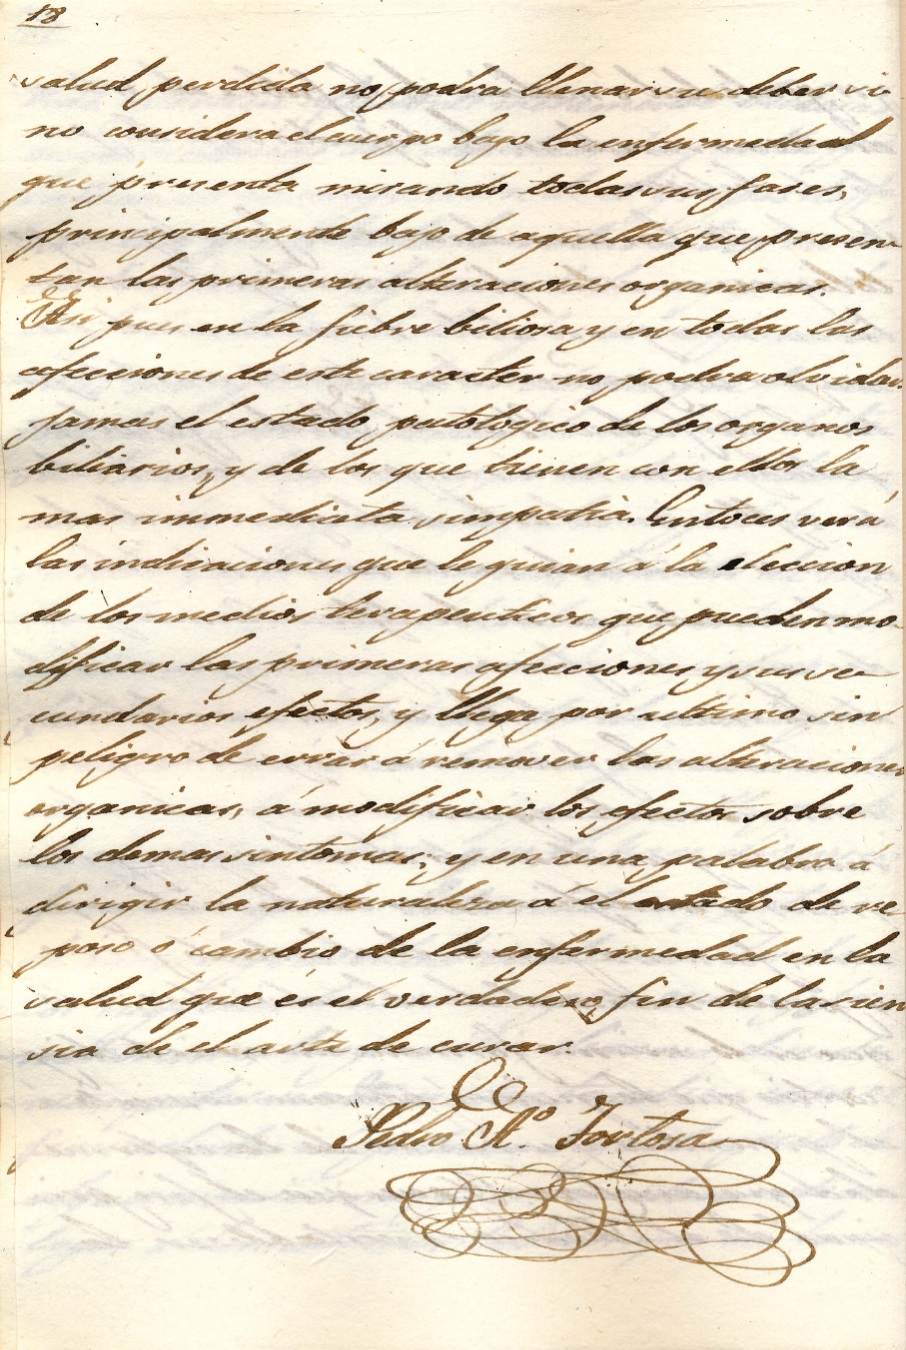 18
salud perdida no podra llenar su deber si
no considera el cuerpo bajo la enfermedad
que presenta mirando todas sus fases,
principalmente bajo de aquella que presen-
tan las primeras alteraciones organicas.
Asi pues en la fiebre biliosa y en todas las
afecciones de este caracter no podra olvidar
jamas el estado patologico de los organos
biliarios, y de los que tienen con ellos la
mas immediata simpatia. Entoces verá
las indicaciones que le guian á la eleccion
de los medios terapeuticos que pueden mo-
dificar las primeras afecciones y sus se-
cundarios efectos, y llega por ultimo sin
peligro de errar á remover las alteraciones
organicas, á modificar los efectos sobre
los demas sintomas, y en una palabra á
dirigir la naturaleza á el estado de re
poso ó cambio de la enfermedad en la
salud que és el verdadero fin de la cien
sia de el arte de curar.
Pedro A.º Tortosa